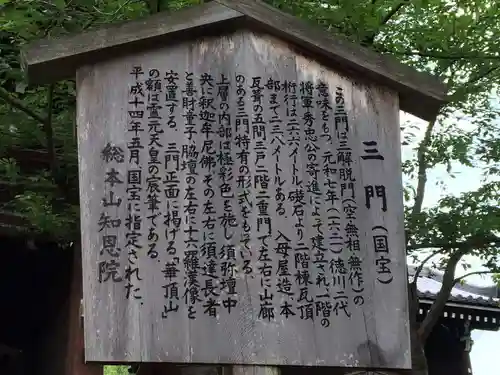 三門(国宝)
この三門は三解脱門(空・無相・無作)の
意味をもつ、元和七年(一六二一)徳川二代
将軍秀忠公の寄進によって建立され一階の
桁行は二六・六メートル、礎石より二階棟瓦頂
部まで二三・八メートルである。入母屋造、本
瓦葺の五間三戸二階二重門で左右に山廊
のある三門特有の形式をもっている。
上層の内部は極彩色を施し、須弥壇中
央に釈迦牟尼佛、その左右に須達長者
と善財童子、脇壇の左右に十六羅漢像を
安置する。三門正面に掲げる「華頂山」
の額は霊元天皇の宸筆である。
平成十四年五月、国宝に指定された。
総本山知恩院